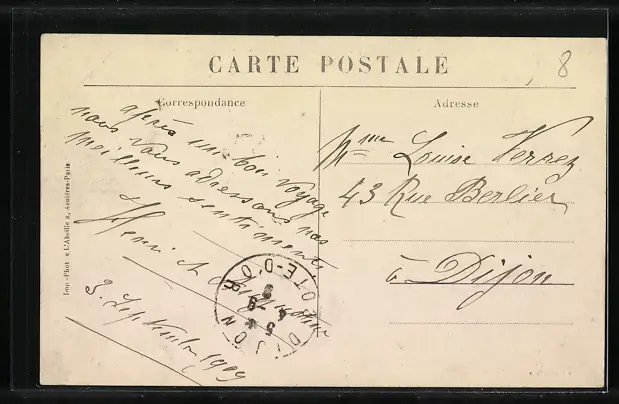 CARTE POSTALE
8
Correspondance
Adresse
après un bon voyage
nous vous adressons nos
meilleurs sentiments
Henri et
3 Septembre 1909
Mme Louise Verrez
43 Rue Berlier
à Dijon
DIJON
COTE-D'OR
Imp.-Phot « L'Abeille », Asnières-Paris